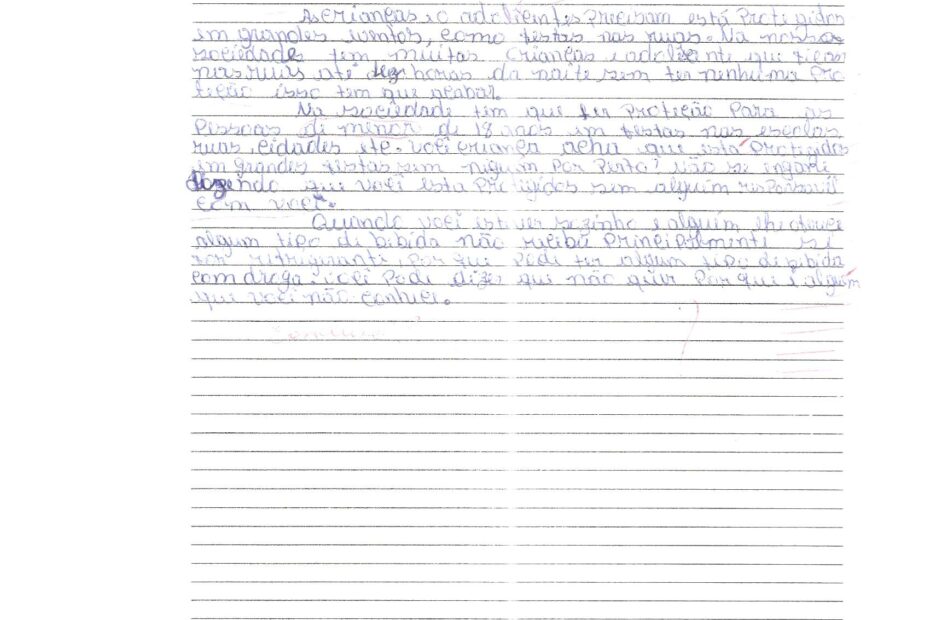 As crianças e o adolientes precisam está protegidos
em grandes eventos, como festas nas ruas. Na nossa
sociedade tem muitas crianças e adolecente que ficam
nas ruas até horas da noite sem ter nenhuma pro
teção isso tem que acabar.
Na sociedade tem que ter proteção para as
pessoas de menor de 18 anos em festas nas escolas,
ruas, cidades ete. você criança acha que está protegidos
em grandes festas sem niguem por perto? não se ingane
dizendo que você esta protegidos sem alguém responsavel
com você.
Quando você estiver sozinho e alguém lhe oferece
algum tipo de bibida não reciba principalmente se
for refrigerante, porque pode ter algum tipo de bibida
com droga. você pode dizer que não quer porque e alguém
que você não conhece.